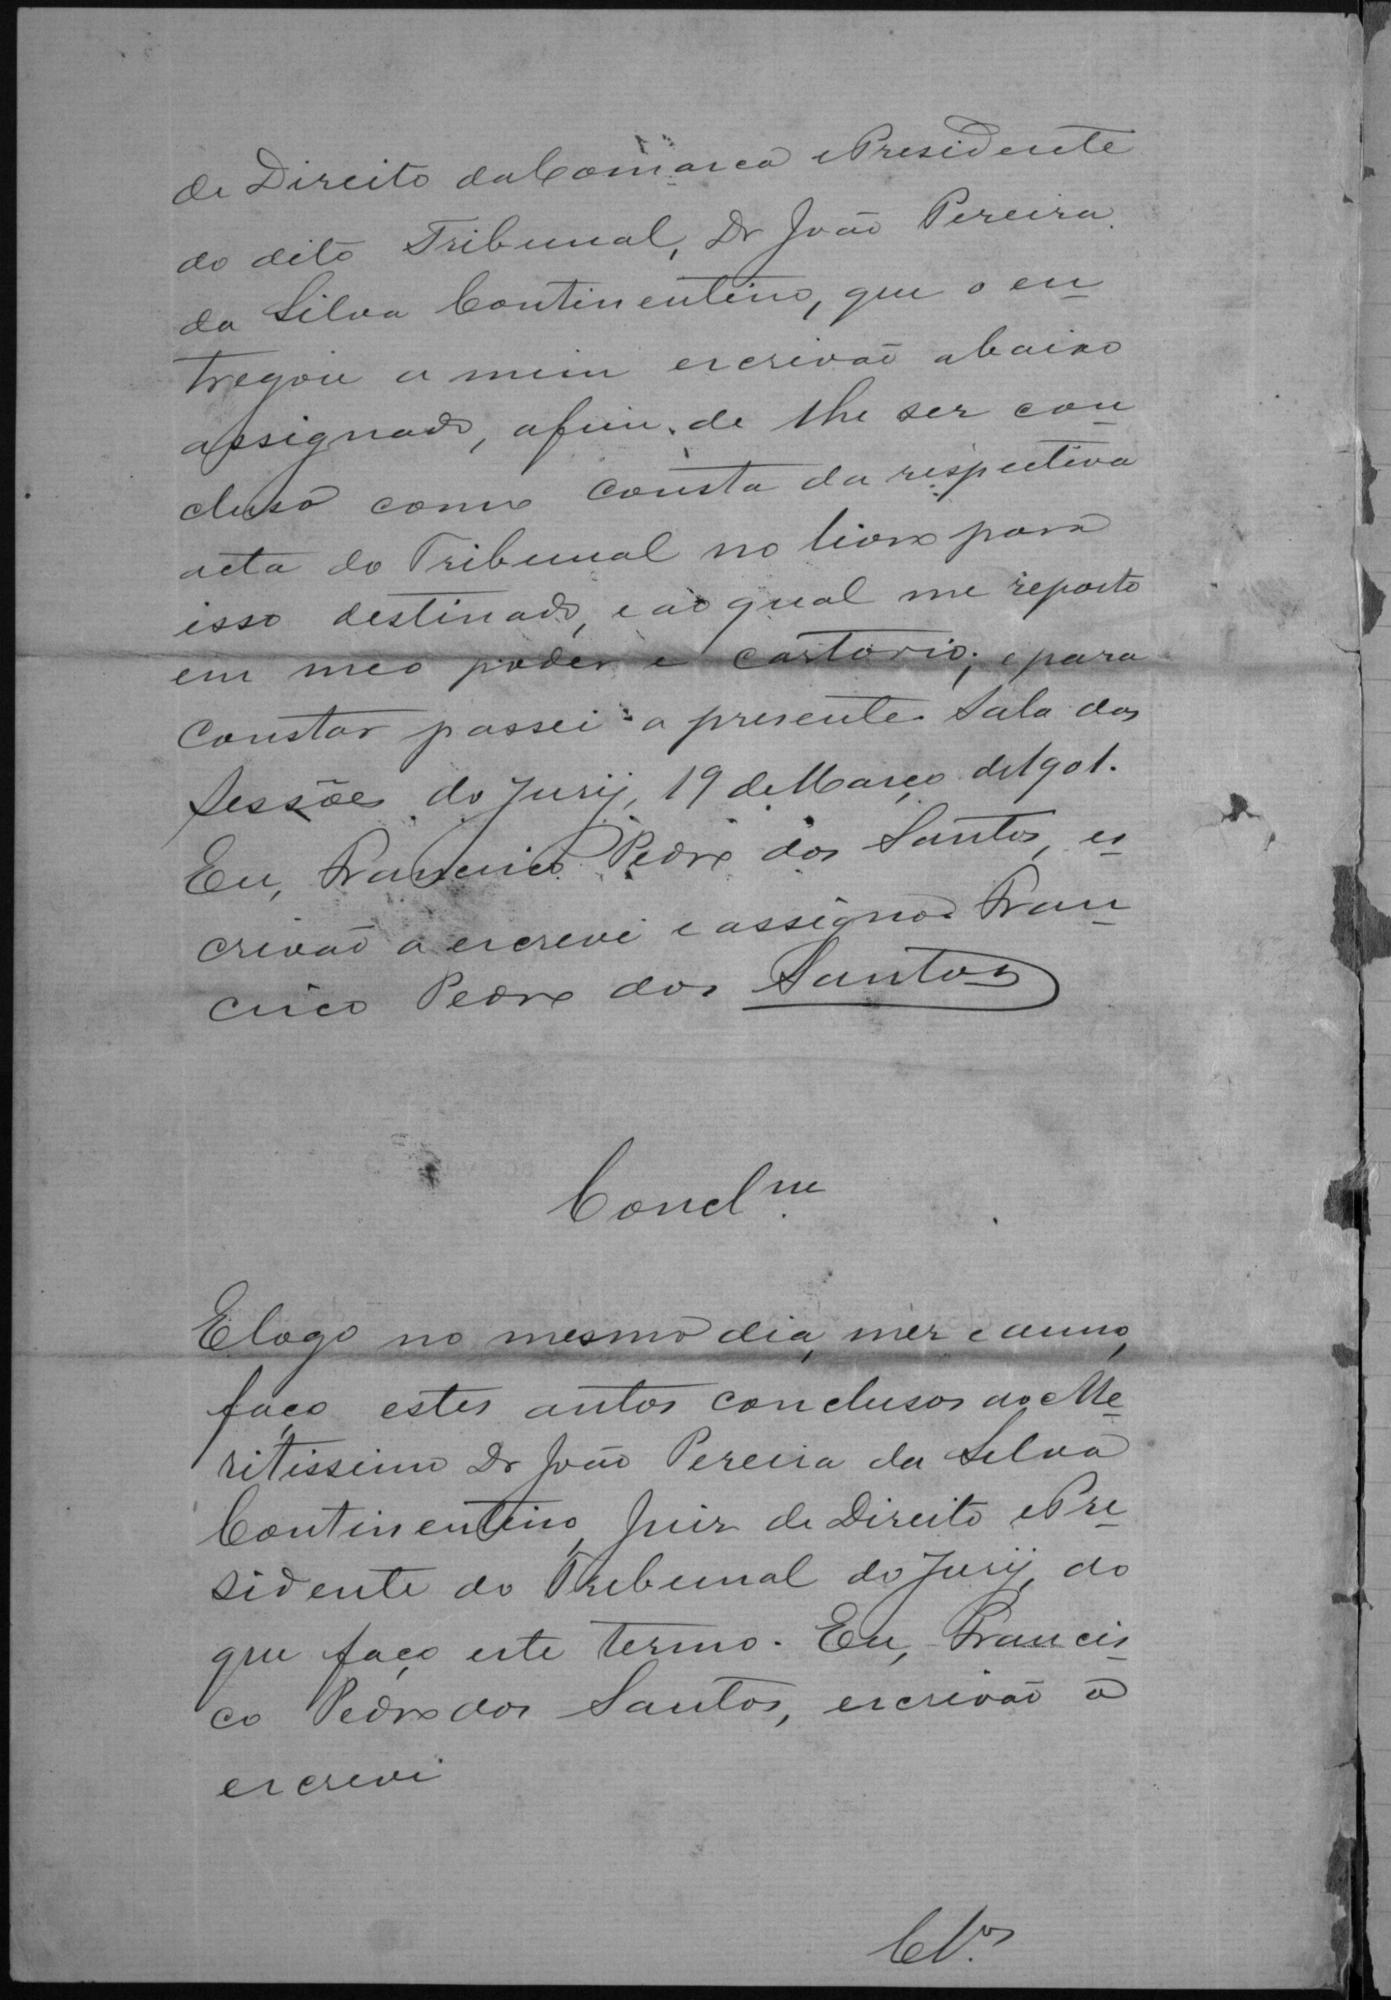 de Direito da Comarca e Presidente
do dito Tribunal, Dr João Pereira
da Silva Continentino, que o en
tregou a mim escrivão abaixo
assignado, afim de lhe ser con
cluso como consta da respectiva
acta do Tribunal no livro para
isso destinado, e ao qual me reporto
em meo poder e cartorio; e para
constar passei a presente. Sala das
Sessões do Jury, 19 de Março de 1901.
Eu, Francisco Pedro dos Santos, es
crivão a escrevi e assigno. Fran
cisco Pedro dos Santos
Concl.
E logo no mesmo dia, mez e anno,
faço estes autos conclusos ao Me
ritissimo Dr João Pereira da Silva
Continentino, Juiz de Direito e Pre
sidente do Tribunal do Jury, do
que faço este termo. Eu, Francis
co Pedro dos Santos, escrivão o
escrevi
Cl.os